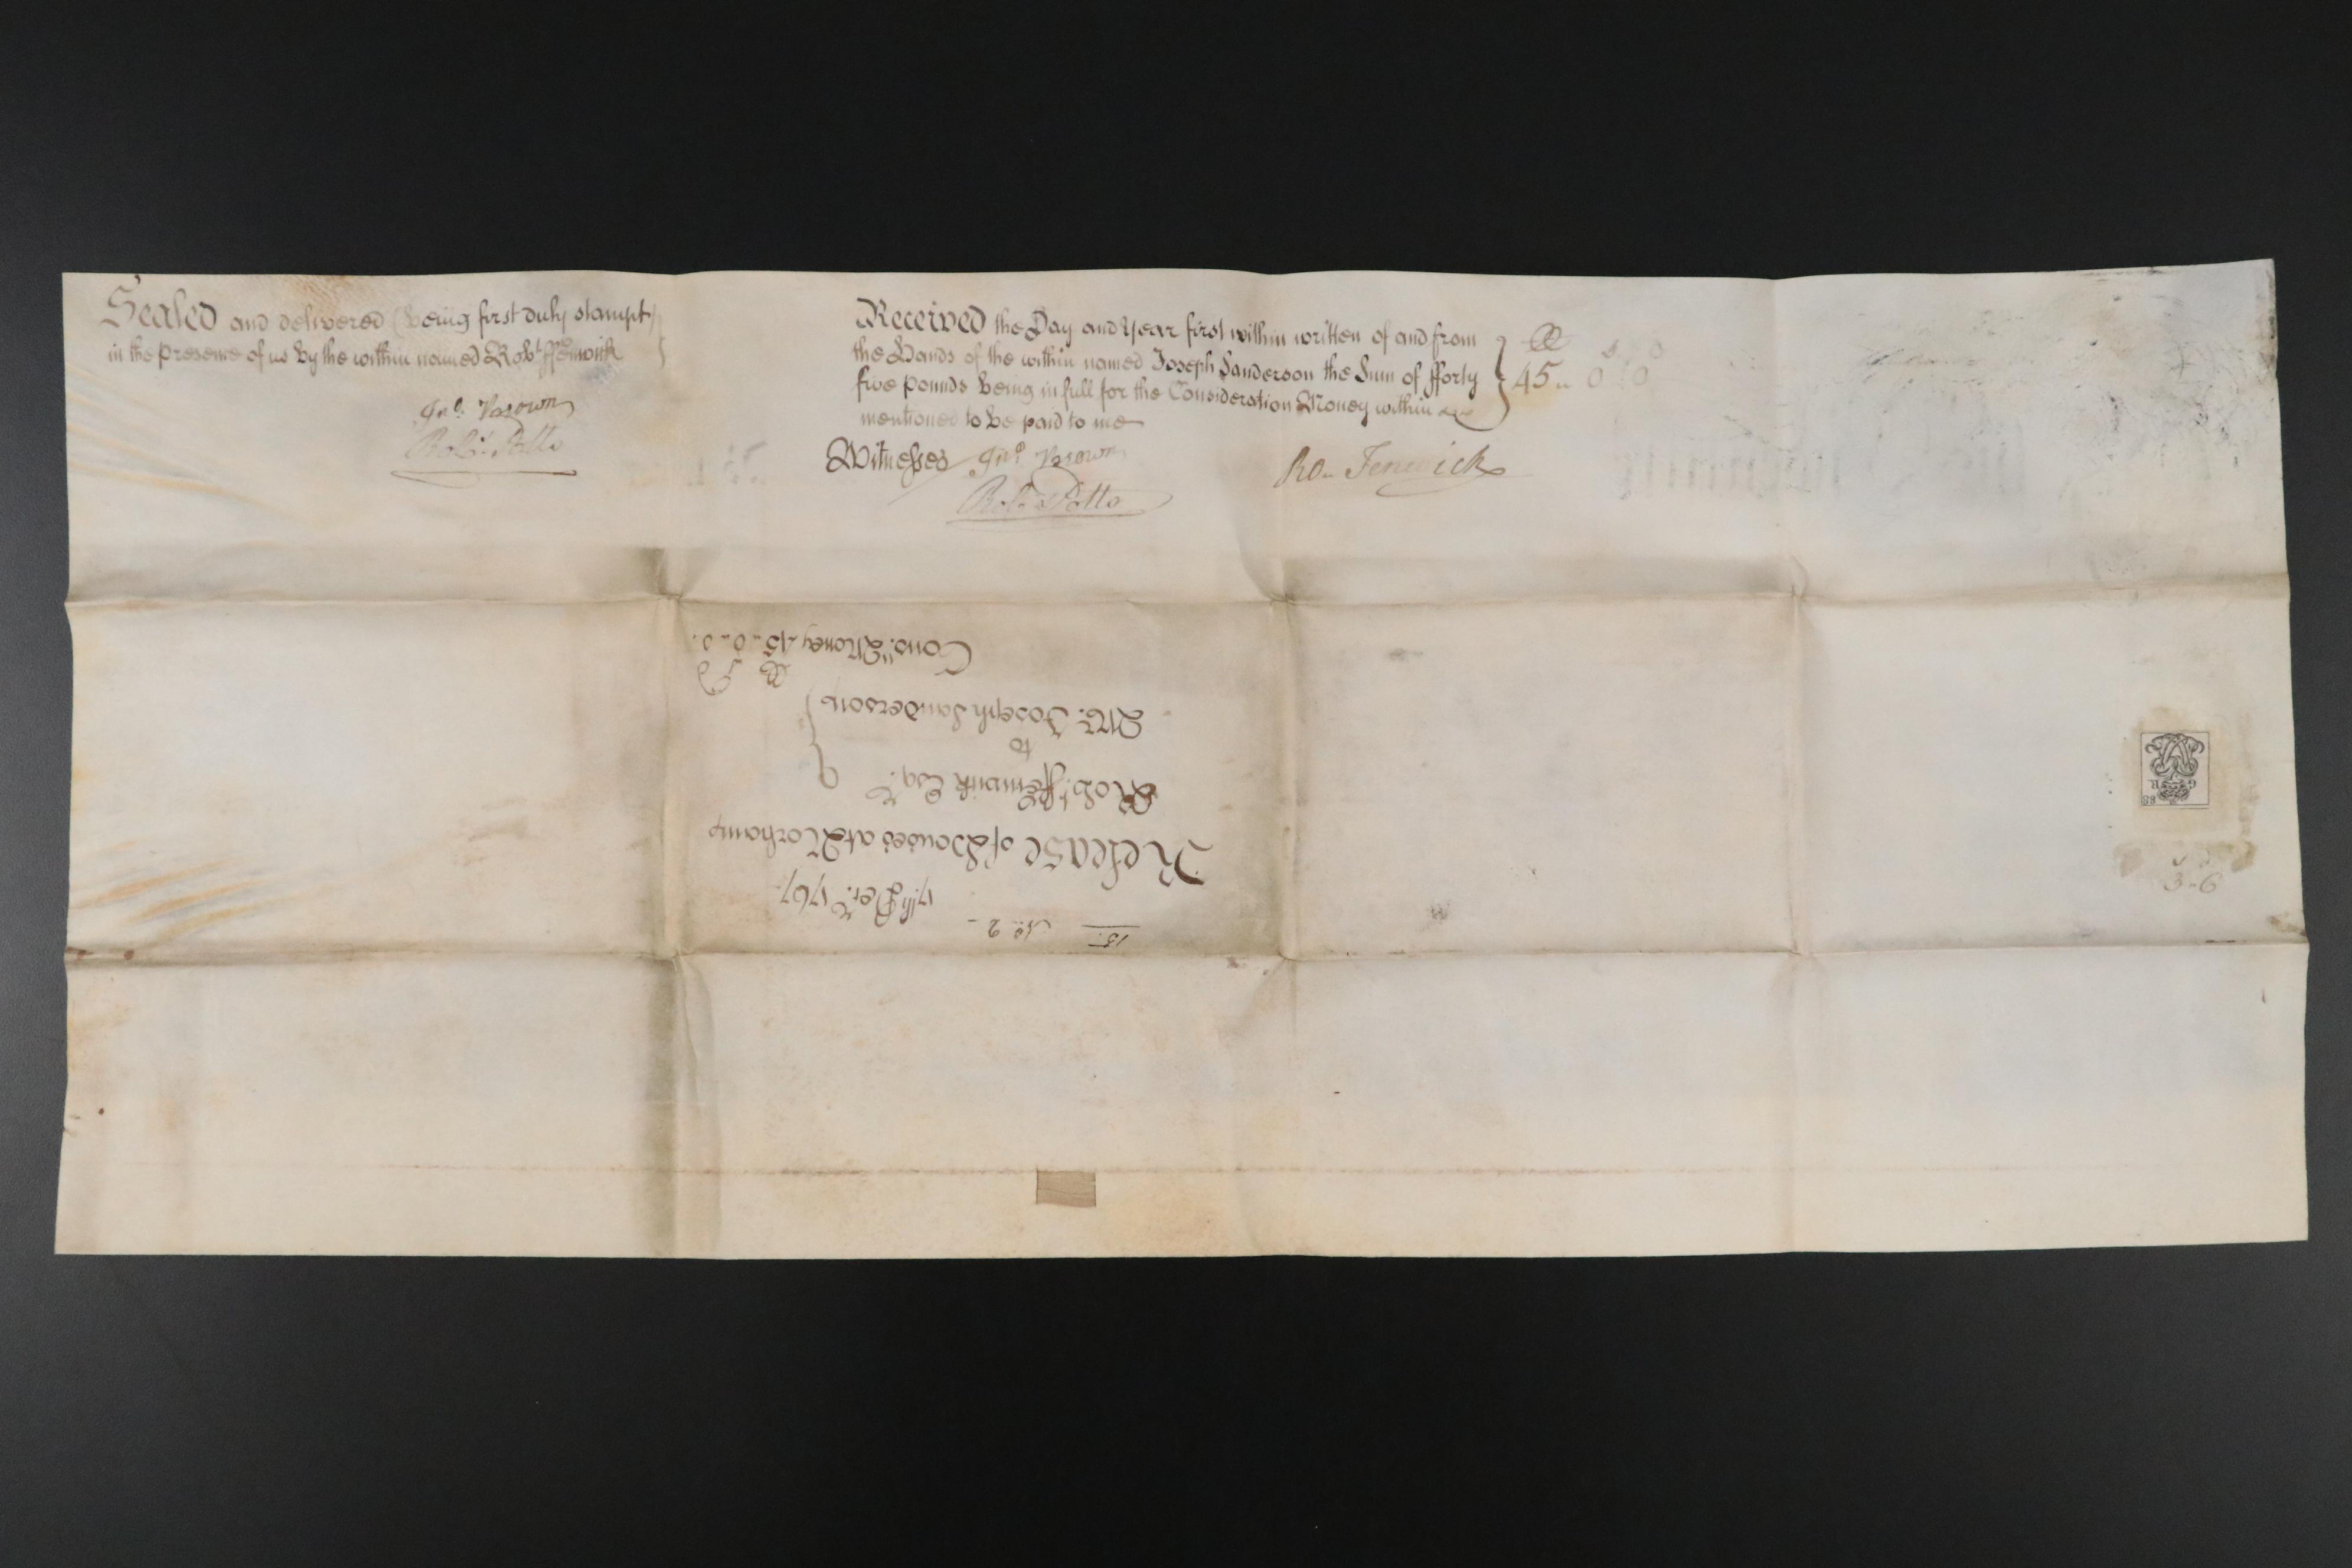 Sealed and delivered (being first duly stampt)
in the presence of us by the within named Robt. ffenwick
Jno. Brown
Robt. Potts
Received the Day and Year first within written of and from
the Hands of the within named Joseph Sanderson the Sum of fforty
five pounds being in full for the Consideration Money within
mentioned to be paid to me
£ s d
45 " 0 " 0
Witnesses Jno. Brown
Robt. Potts
Ro. Fenwick
15 No. 2
17th Decr. 1767
Release of Houses at Norham
Robt. ffenwick Esqr.
to
Mr. Joseph Sanderson
£ s d
Conson. Money 45 " 0 " 0
G R
3 " 6